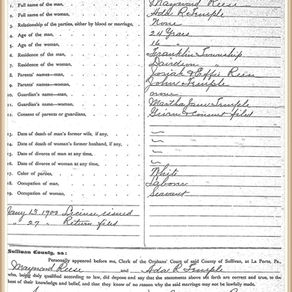 Full name of the man, Maynard Reese
Full name of the woman, Ada R Temple
Relationship of the parties, either by blood or marriage, None
Age of the man, 24 Years
Age of the woman, 16 "
Residence of the man, Franklin Township
Residence of the woman, Davidson "
Parents' names—man, Josiah & Effie Reese
Parents' names—woman, John Temple
Guardian's name—man,
Guardian's name—woman, Martha Jane Temple
Consent of parents or guardians, Given & consent filed
Date of death of man's former wife, if any,
Date of death of woman's former husband, if any,
Date of divorce of man at any time,
Date of divorce of woman at any time,
Color of parties, White
Occupation of man, Laborer
Occupation of woman, Servant
13 1902 License issued
" 27 " Return filed
Sullivan County, ss:
Personally appeared before me, Clerk of the Orphans' Court of said County of Sullivan, at La Porte, Pa.,
Maynard Reese and Ada R Temple
who being duly qualified according to law, did depose and say that the statements above set forth are correct and true, to the
best of their knowledge and belief, and that they know of no reason why the said marriage may not be lawfully made.